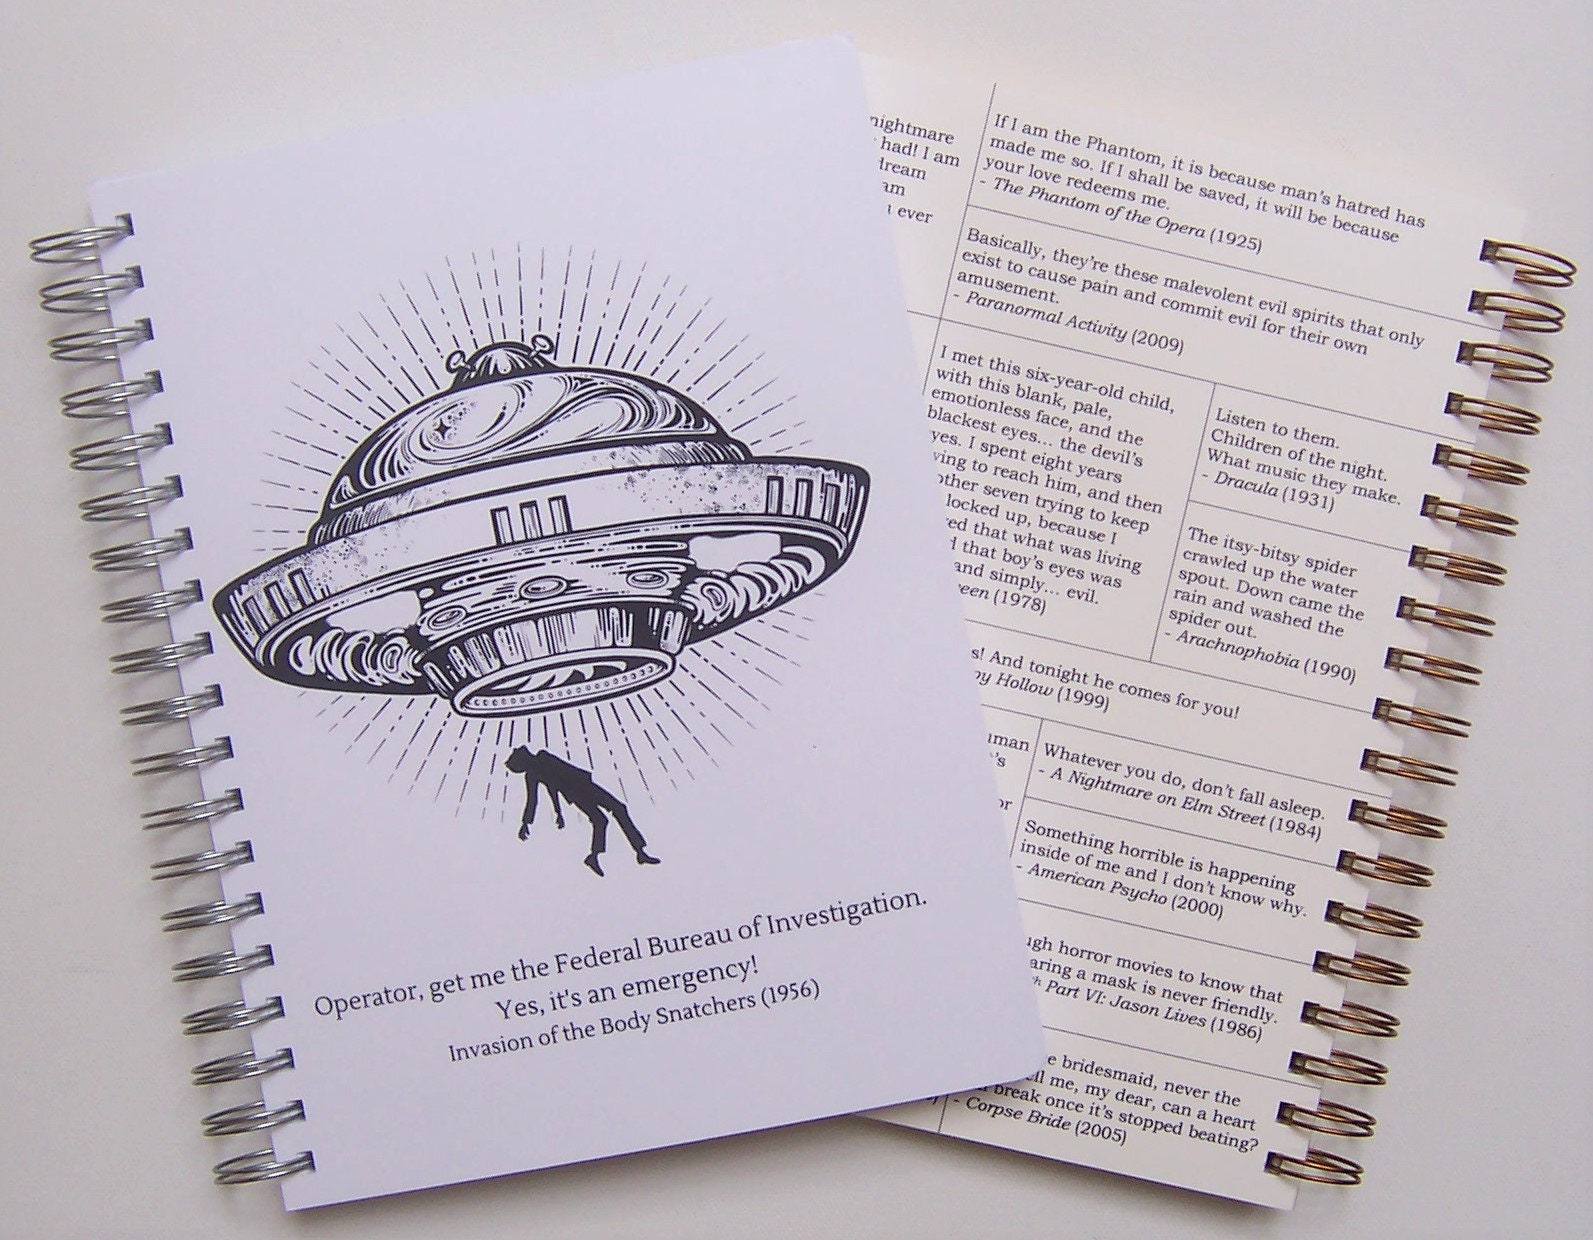 Operator, get me the Federal Bureau of Investigation.
Yes, it's an emergency!
Invasion of the Body Snatchers (1956)
nightmare
had! I am
ever
If I am the Phantom, it is because man's hatred has
made me so. If I shall be saved, it will be because
your love redeems me.
- The Phantom of the Opera (1925)
Basically, they're these malevolent evil spirits that only
exist to cause pain and commit evil for their own
amusement.
- Paranormal Activity (2009)
I met this six-year-old child,
with this blank, pale,
emotionless face, and the
blackest eyes... the devil's
yes. I spent eight years
ying to reach him, and then
other seven trying to keep
locked up, because I
ed that what was living
d that boy's eyes was
and simply... evil.
een (1978)
Listen to them.
Children of the night.
What music they make.
- Dracula (1931)
The itsy-bitsy spider
crawled up the water
spout. Down came the
rain and washed the
spider out.
- Arachnophobia (1990)
s! And tonight he comes for you!
py Hollow (1999)
uman
's
or
Whatever you do, don't fall asleep.
- A Nightmare on Elm Street (1984)
Something horrible is happening
inside of me and I don't know why.
- American Psycho (2000)
ugh horror movies to know that
aring a mask is never friendly.
h Part VI: Jason Lives (1986)
e bridesmaid, never the
ell me, my dear, can a heart
break once it's stopped beating?
- Corpse Bride (2005)